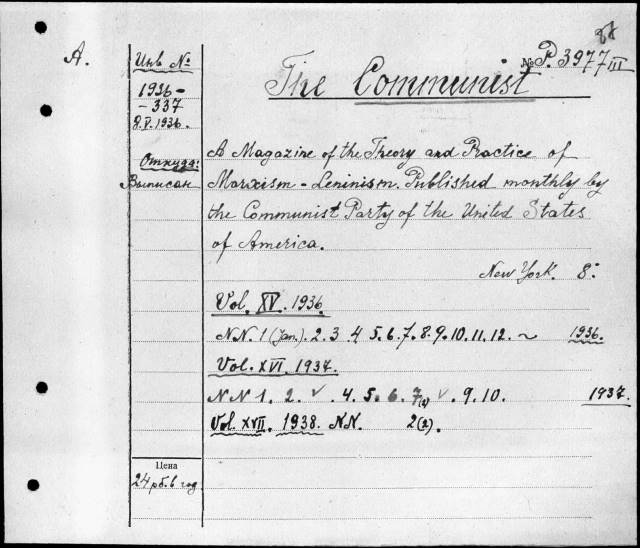 A.
Инв №
1936-
-337
8.V.1936.
Откуда:
Выписан
№ P. 3977 III
The Communist
A Magazine of the Theory and Practice of
Marxism-Leninism. Published monthly by
the Communist Party of the United States
of America.
New York. 8°.
Vol. XV. 1936.
NN. 1 (Jan.). 2. 3 4 5. 6. 7. 8. 9. 10. 11. 12. ~ 1936.
Vol. XVI. 1937.
NN 1. 2. ✓ . 4. 5. 6. 7(2) ✓ . 9. 10. 1937.
Vol. XVII. 1938. NN. 2(2).
Цена
24 рб. в год.